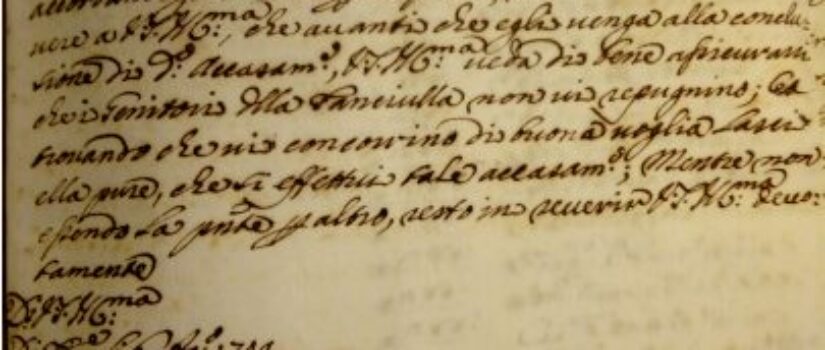 vere a V.S. Ill:ma, che avanti che egli venga alla conclu-
sione di d:o Accasam:o, V.S. Ill:ma veda di bene assicurarsi
che i Genitori della Fanciulla non vi repugnino; Et
trovando che vi concorrino di buona voglia lasci
ella pure, che si effettui tale accasam:o; Mentre non
essendo la pnte p altro, resto in reverir V.S. Ill:ma devo-
tamente
Di V.S. Ill:ma